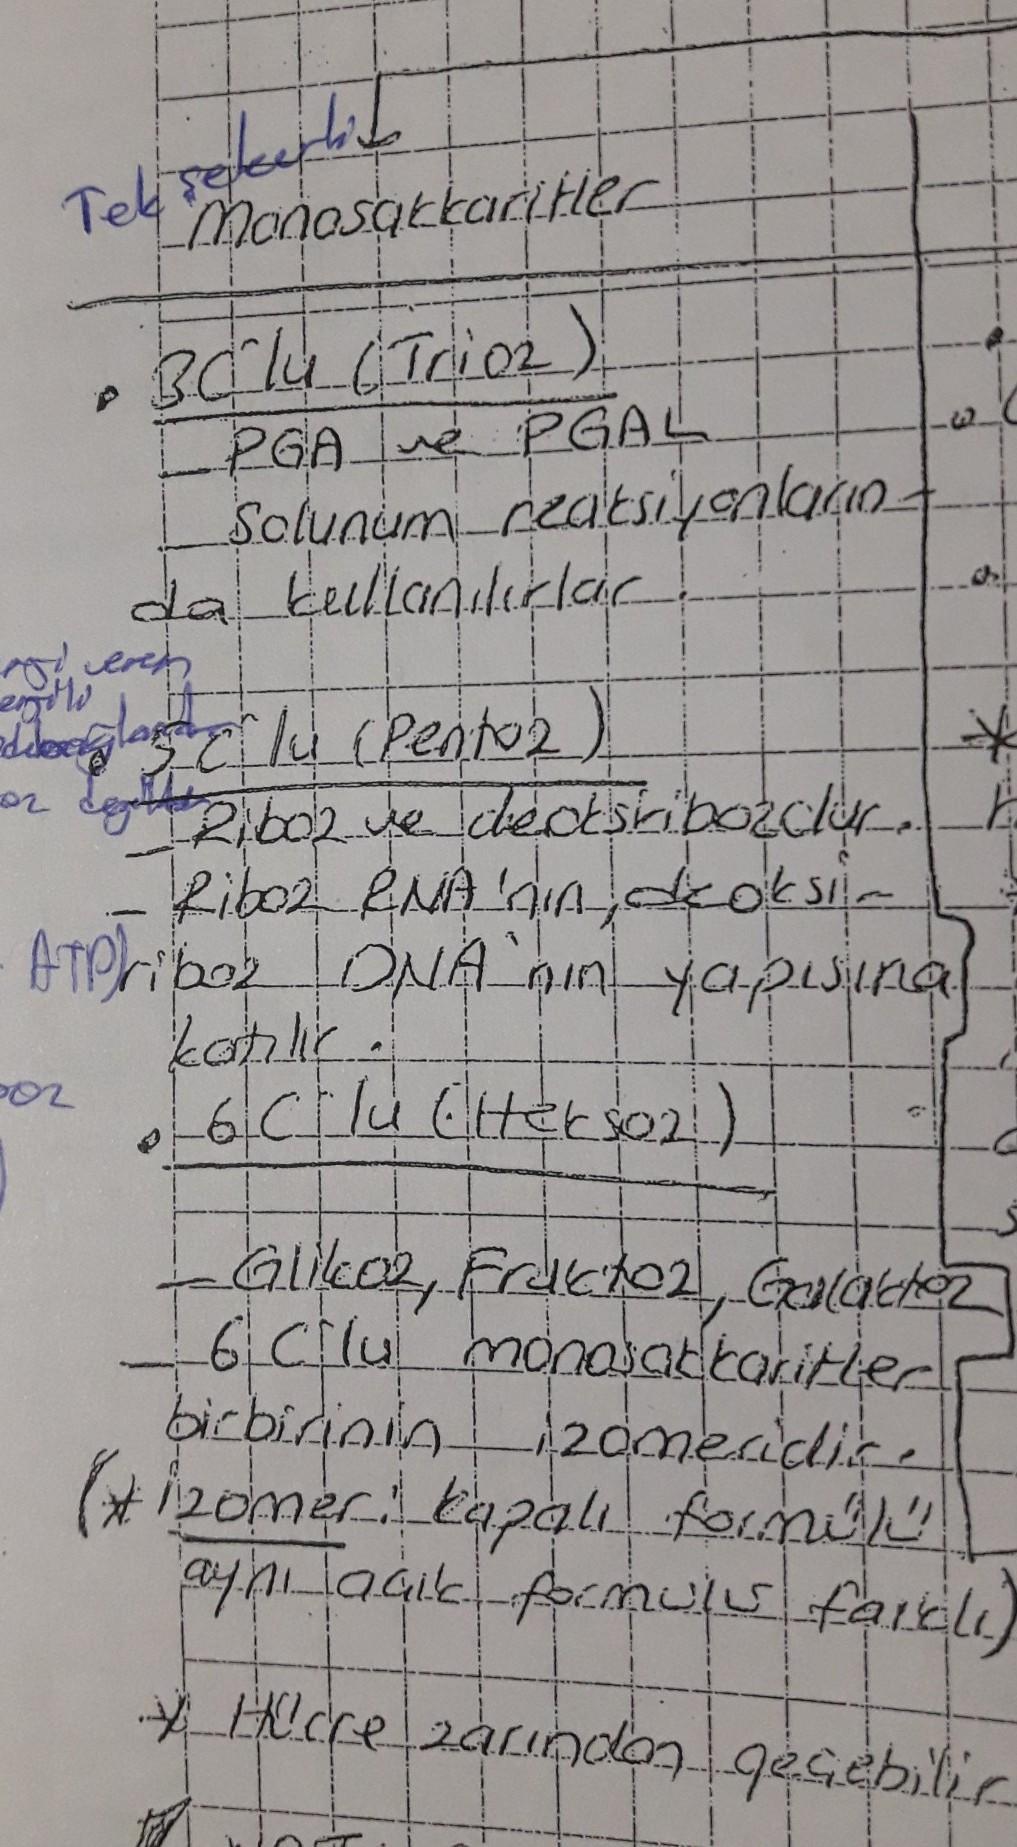 Tek şekerli
Monosakkaritler
• 3C'lu (Trioz)
– PGA ve PGAL
– Solunum reaksiyonların-
da kullanılırlar.
• 5C'lu (Pentoz)
– Riboz ve deoksiribozdur.
– Riboz RNA'nın, deoksi-
riboz DNA'nın yapısına
katılır.
ATP)
• 6C'lu (Heksoz)
– Glikoz, Fruktoz, Galaktoz
– 6C'lu monosakkaritler
birbirinin izomeridir.
(* İzomer: kapalı formülü
aynı açık formülü farklı)
* Hücre zarından geçebilir